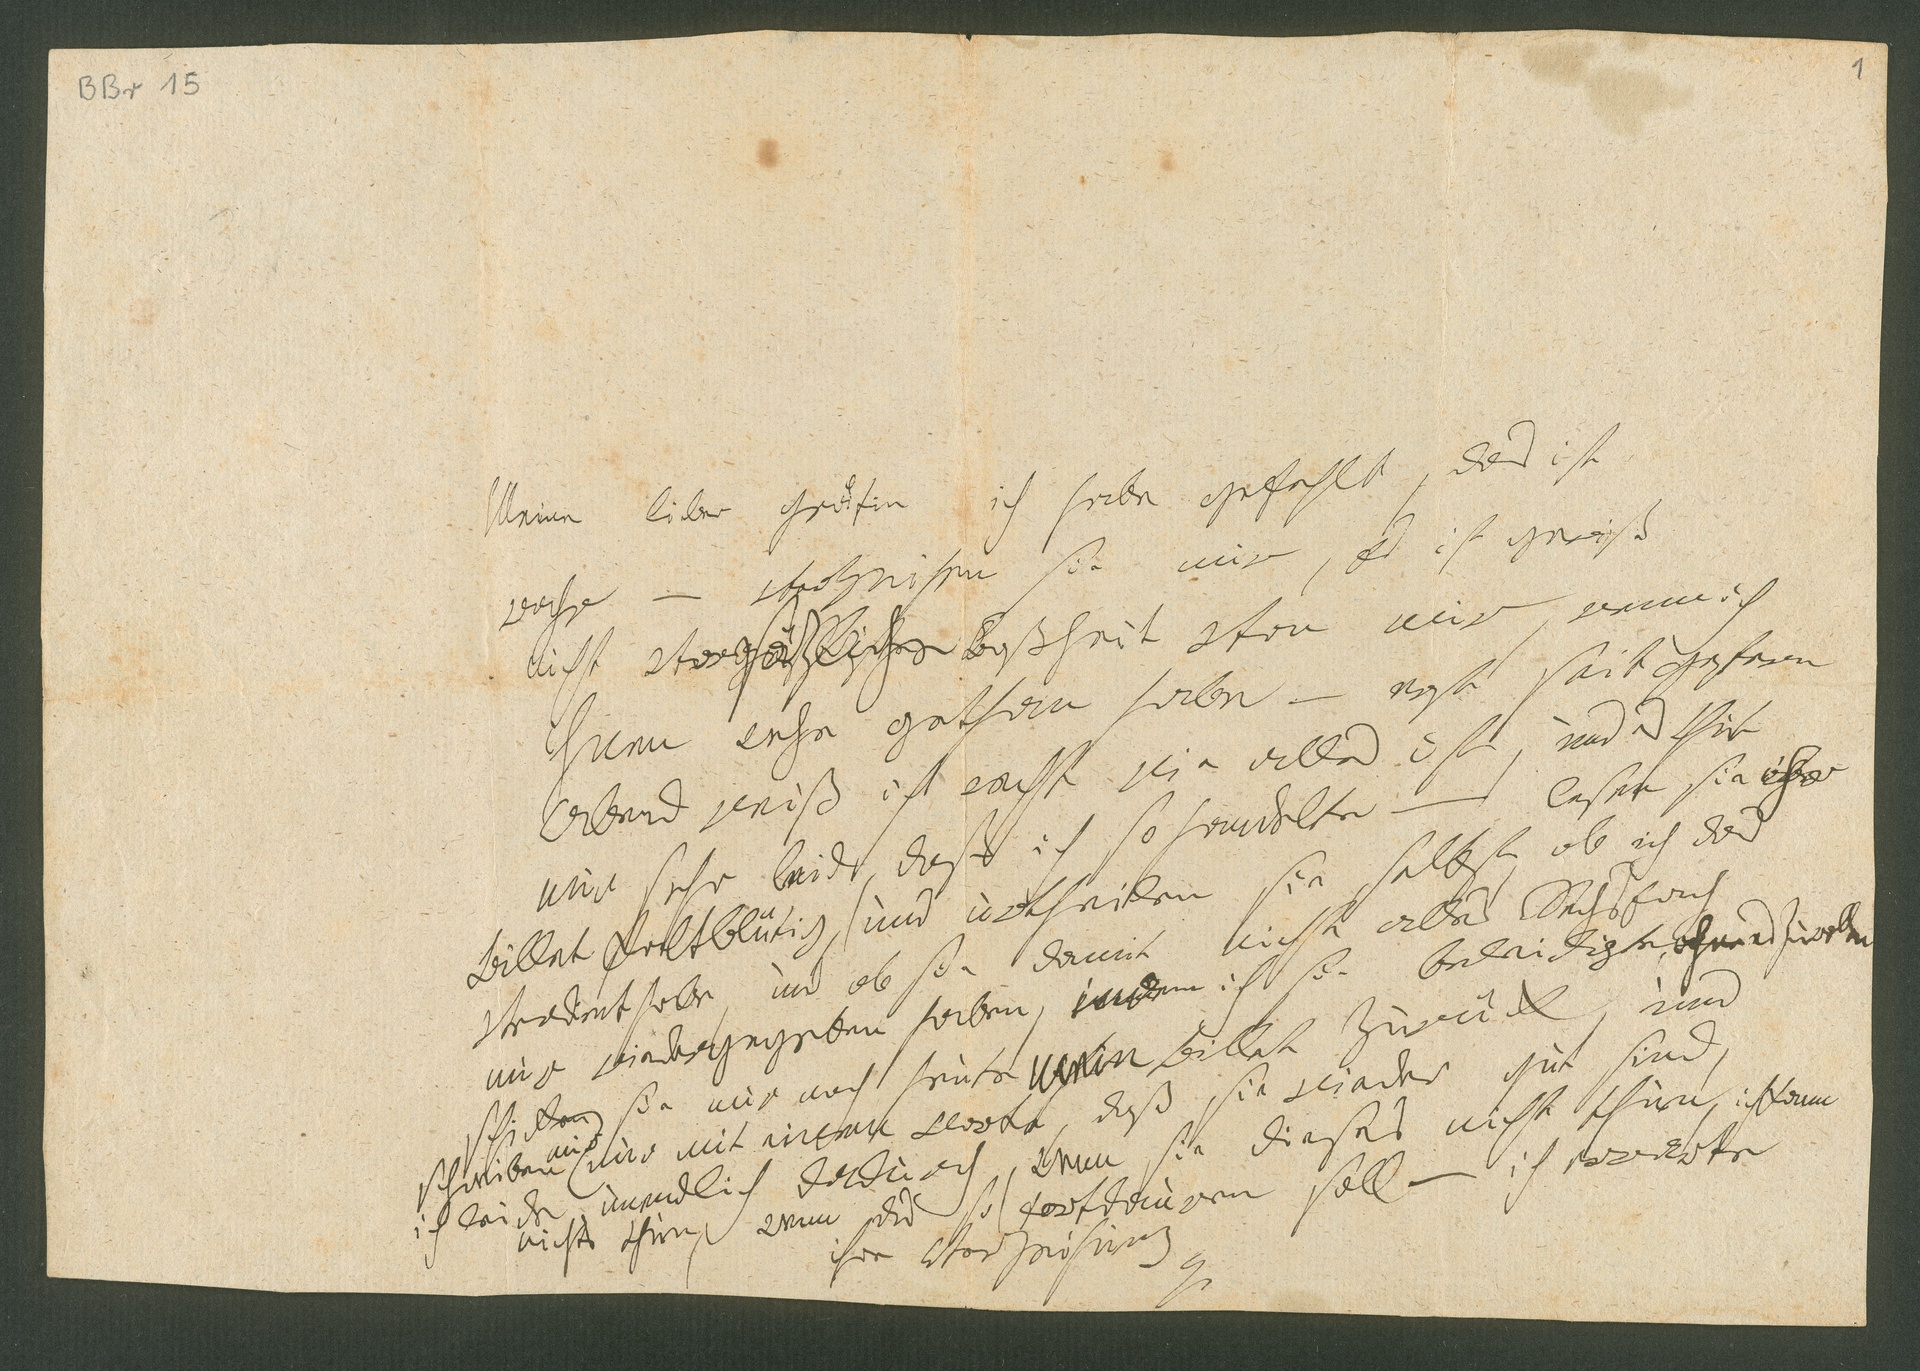 BBr 15
1
Meine liebe Gräfin ich habe gefehlt, das ist
wahr — verzeihen sie mir, es ist gewiß
nicht vorsezliche Boßheit von mir, wenn ich
ihnen wehe gethan habe — erst seit gestern
Abend weiß ich recht wie alles ist, und es thut
mir sehr leid, daß ich so handelte — lesen sie ihr
Billet kaltblütig, und urtheilen sie selbst, ob ich das
verdient habe, und ob sie damit nicht alles Sechsfach
mir wiedergegeben haben, indem ich sie beleidigte, ohne es zu wollen
schicken sie mir noch heute mein Billet zurück, und
schreiben mir nur mit einem worte, daß sie wieder gut sind,
ich leide unendlich dadurch, wenn sie dieses nicht thun, ich kann
nichts thun, wenn das so fortdauren soll — ich erwarte
ihre Verzeihung